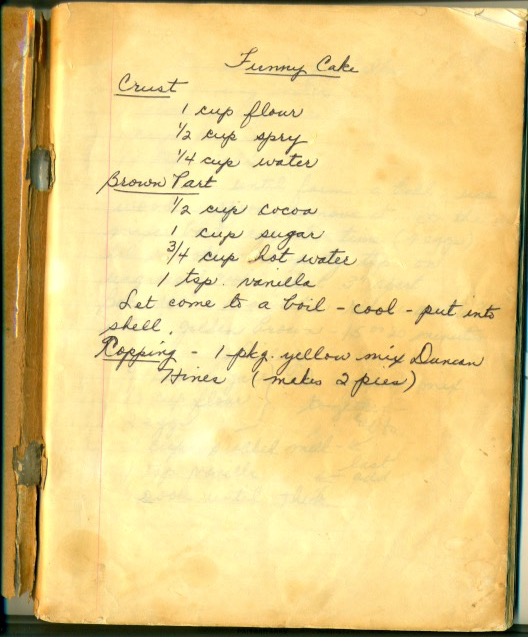 Funny Cake
Crust
1 cup flour
1/2 cup spry
1/4 cup water
Brown Part
1/2 cup cocoa
1 cup sugar
3/4 cup hot water
1 tsp. vanilla
Let come to a boil - cool - put into
shell.
Topping - 1 pkg. yellow mix Duncan
Hines (makes 2 pies)